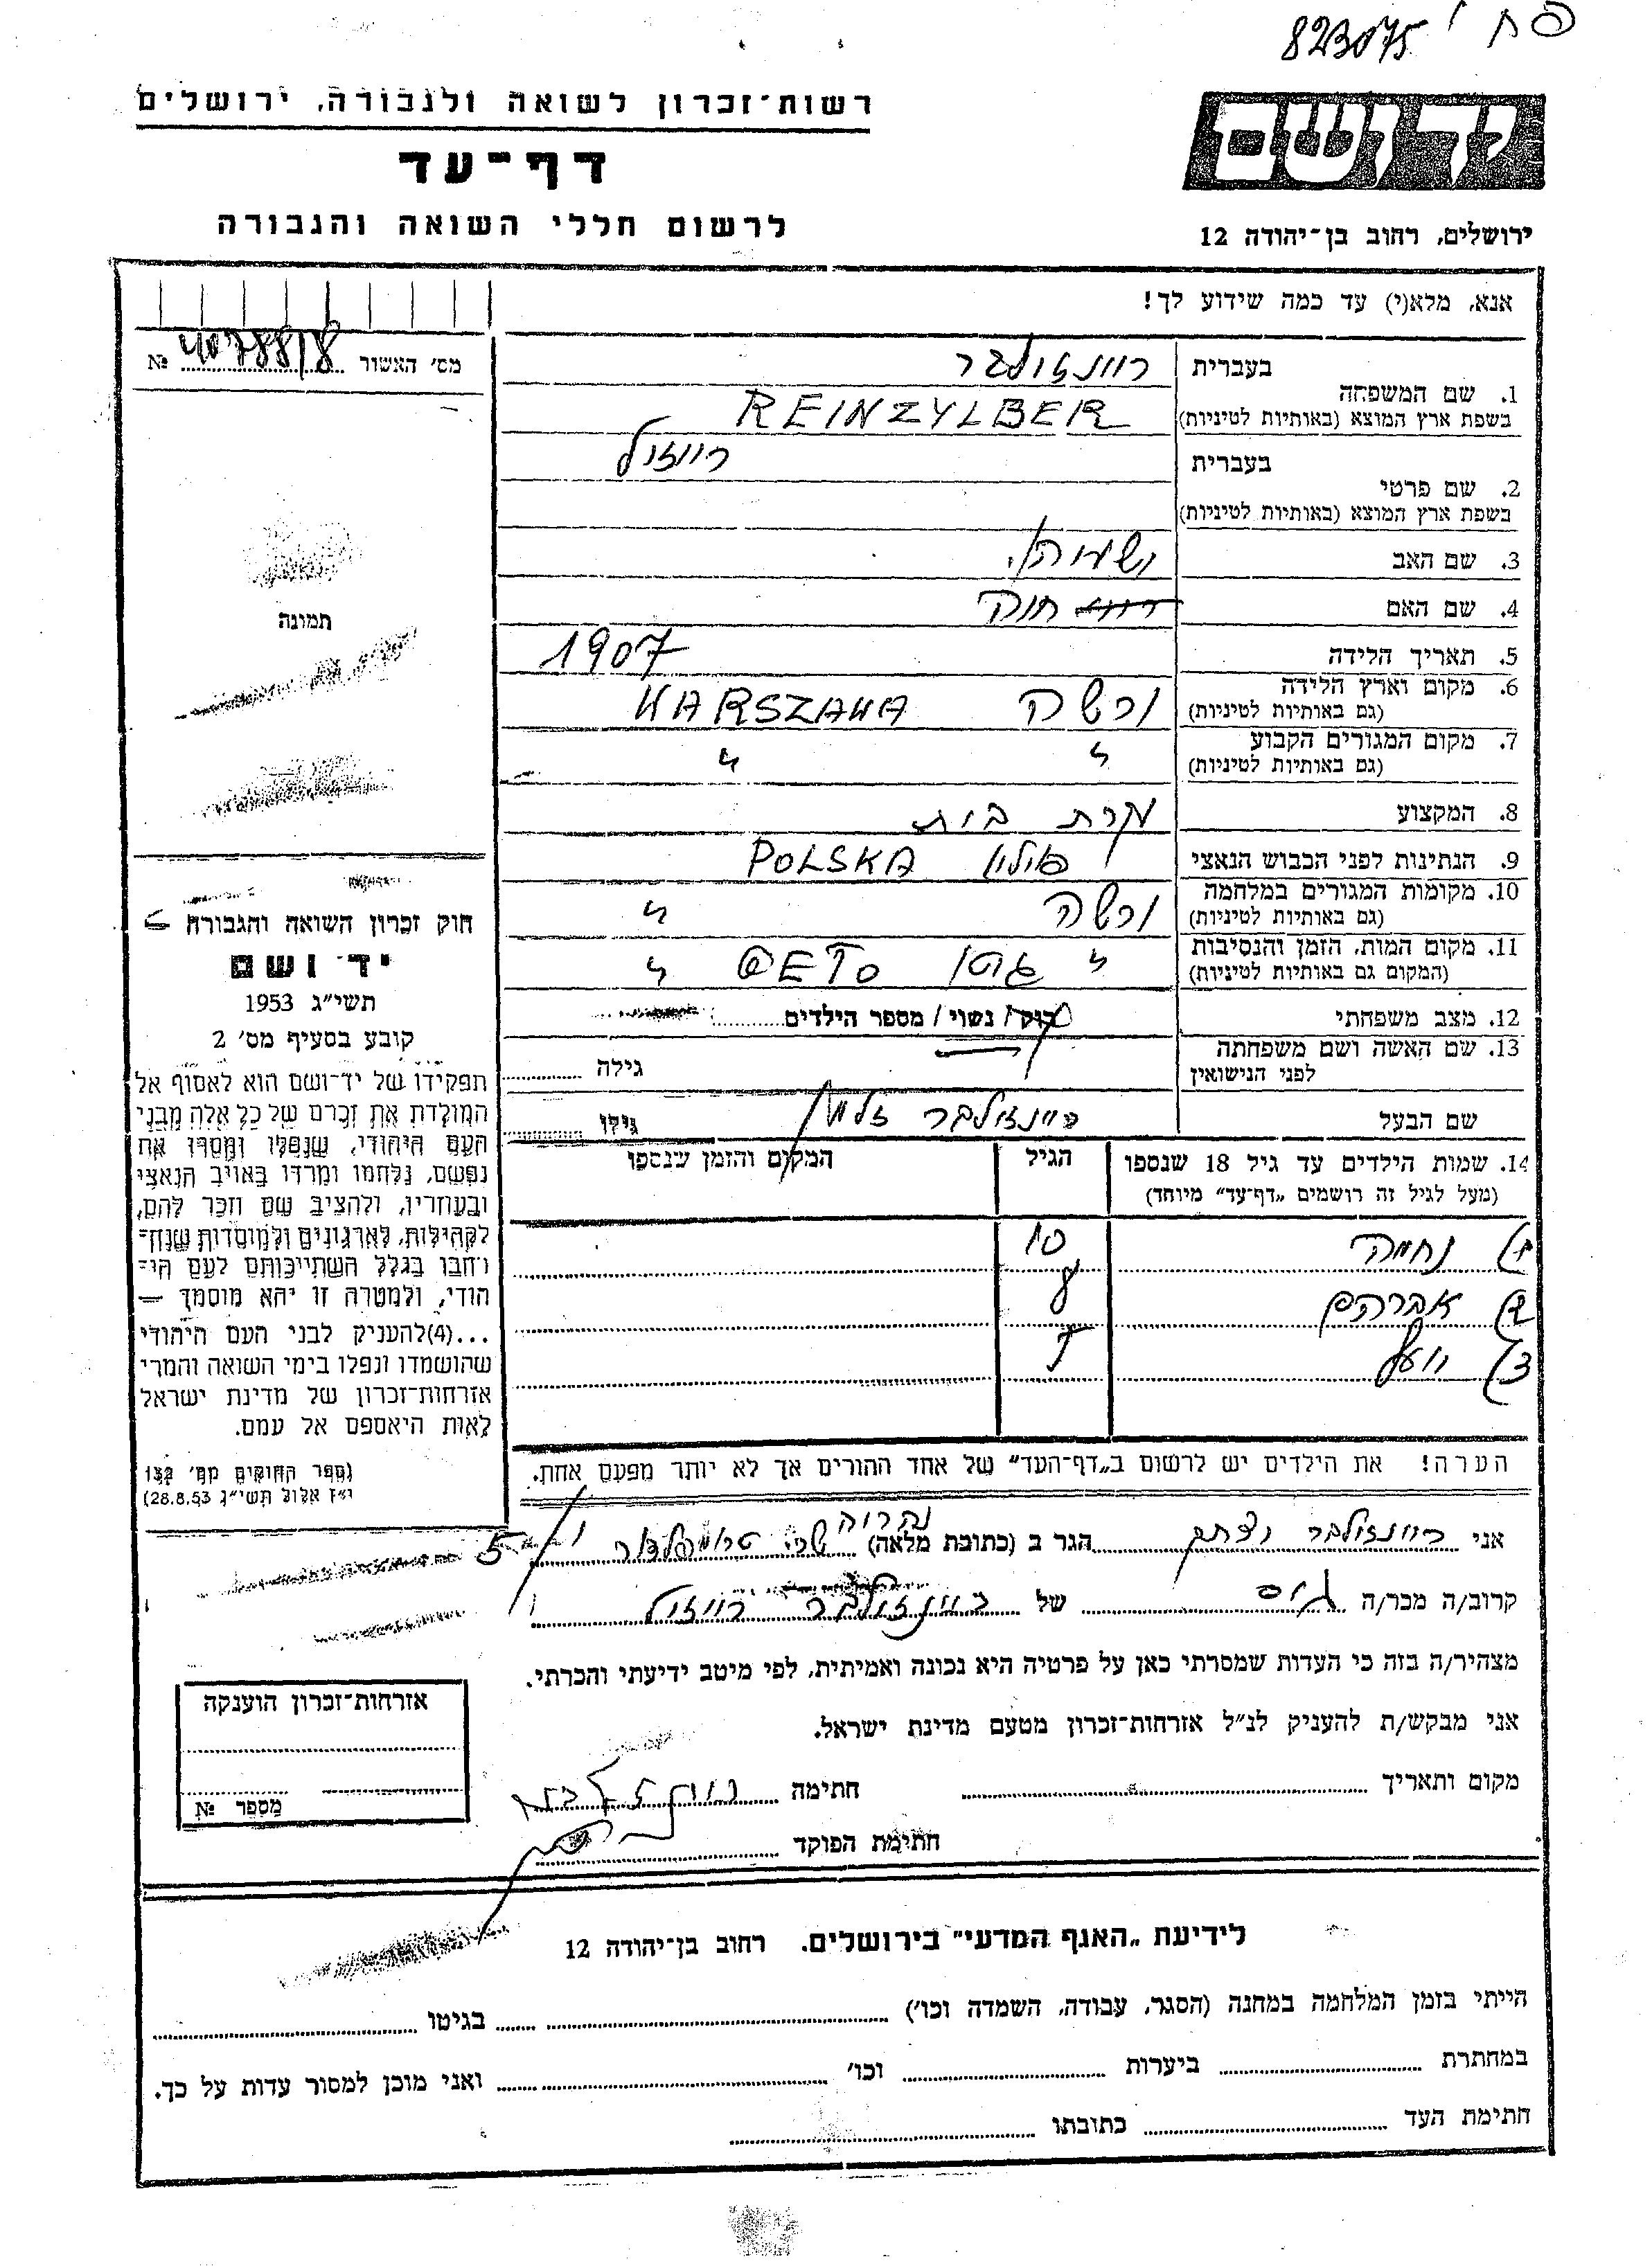 823075
יד ושם
ירושלים, רחוב בן־יהודה 12
רשות־זכרון לשואה ולגבורה, ירושלים
דף־עד
לרשום חללי השואה והגבורה
אנא, מלא(י) עד כמה שידוע לך!
מס׳ האשור № 407881/8
1. שם המשפחה
בעברית ריינזילבר
בשפת ארץ המוצא (באותיות לטיניות) REINZYLBER
2. שם פרטי
בעברית רייזיל
בשפת ארץ המוצא (באותיות לטיניות)
3. שם האב ישעיהו
4. שם האם
5. תאריך הלידה 1907
6. מקום וארץ הלידה
(גם באותיות לטיניות) ורשה WARSZAWA
7. מקום המגורים הקבוע
(גם באותיות לטיניות) " "
8. המקצוע עקרת בית
9. הנתינות לפני הכבוש הנאצי פולין POLSKA
10. מקומות המגורים במלחמה
(גם באותיות לטיניות) ורשה "
11. מקום המות, הזמן והנסיבות
(המקום גם באותיות לטיניות) " גטו GETO "
12. מצב משפחתי רוק/ נשוי/ מספר הילדים
13. שם האשה ושם משפחתה
לפני הנישואין גילה
שם הבעל ריינזילבר זלמן גילו
14. שמות הילדים עד גיל 18 שנספו הגיל המקום והזמן שנספו
(מעל לגיל זה רושמים „דף־עד” מיוחד)
1) נחמה 10
2) אברהם 8
3) יועל 5
הערה! את הילדים יש לרשום ב„דף־העד” של אחד ההורים אך לא יותר מפעם אחת.
תמונה
חוק זכרון השואה והגבורה –
יד ושם
תשי״ג 1953
קובע בסעיף מס׳ 2
תפקידו של יד־ושם הוא לאסוף אל
המולדת את זכרם של כל אלה מבני
העם היהודי, שנפלו ומסרו את
נפשם, נלחמו ומרדו באויב הנאצי
ובעוזריו, ולהציב שם וזכר להם,
לקהילות, לארגונים ולמוסדות שנח־
רבו בגלל השתייכותם לעם הי־
הודי, ולמטרה זו יהא מוסמך —
...(4)להעניק לבני העם היהודי
שהושמדו ונפלו בימי השואה והמרי
אזרחות־זכרון של מדינת ישראל
לאות היאספם אל עמם.
(ספר החוקים מס׳ 132
י״ז אלול תשי״ג 28.8.53)
נהריה
אני ריינזילבר יצחק הגר ב (כתובת מלאה) שכ׳ טרומפלדור 5
קרוב/ה מכר/ה גיס של ריינזילבר רייזיל
מצהיר/ה בזה כי העדות שמסרתי כאן על פרטיה היא נכונה ואמיתית, לפי מיטב ידיעתי והכרתי.
אני מבקש/ת להעניק לנ״ל אזרחות־זכרון מטעם מדינת ישראל.
מקום ותאריך חתימה
חתימת הפוקד
אזרחות־זכרון הוענקה
מספר №
לידיעת „האגף המדעי” בירושלים. רחוב בן־יהודה 12
הייתי בזמן המלחמה במחנה (הסגר, עבודה, השמדה וכו׳) בגיטו
במחתרת ביערות וכו׳ ואני מוכן למסור עדות על כך.
חתימת העד כתובתו